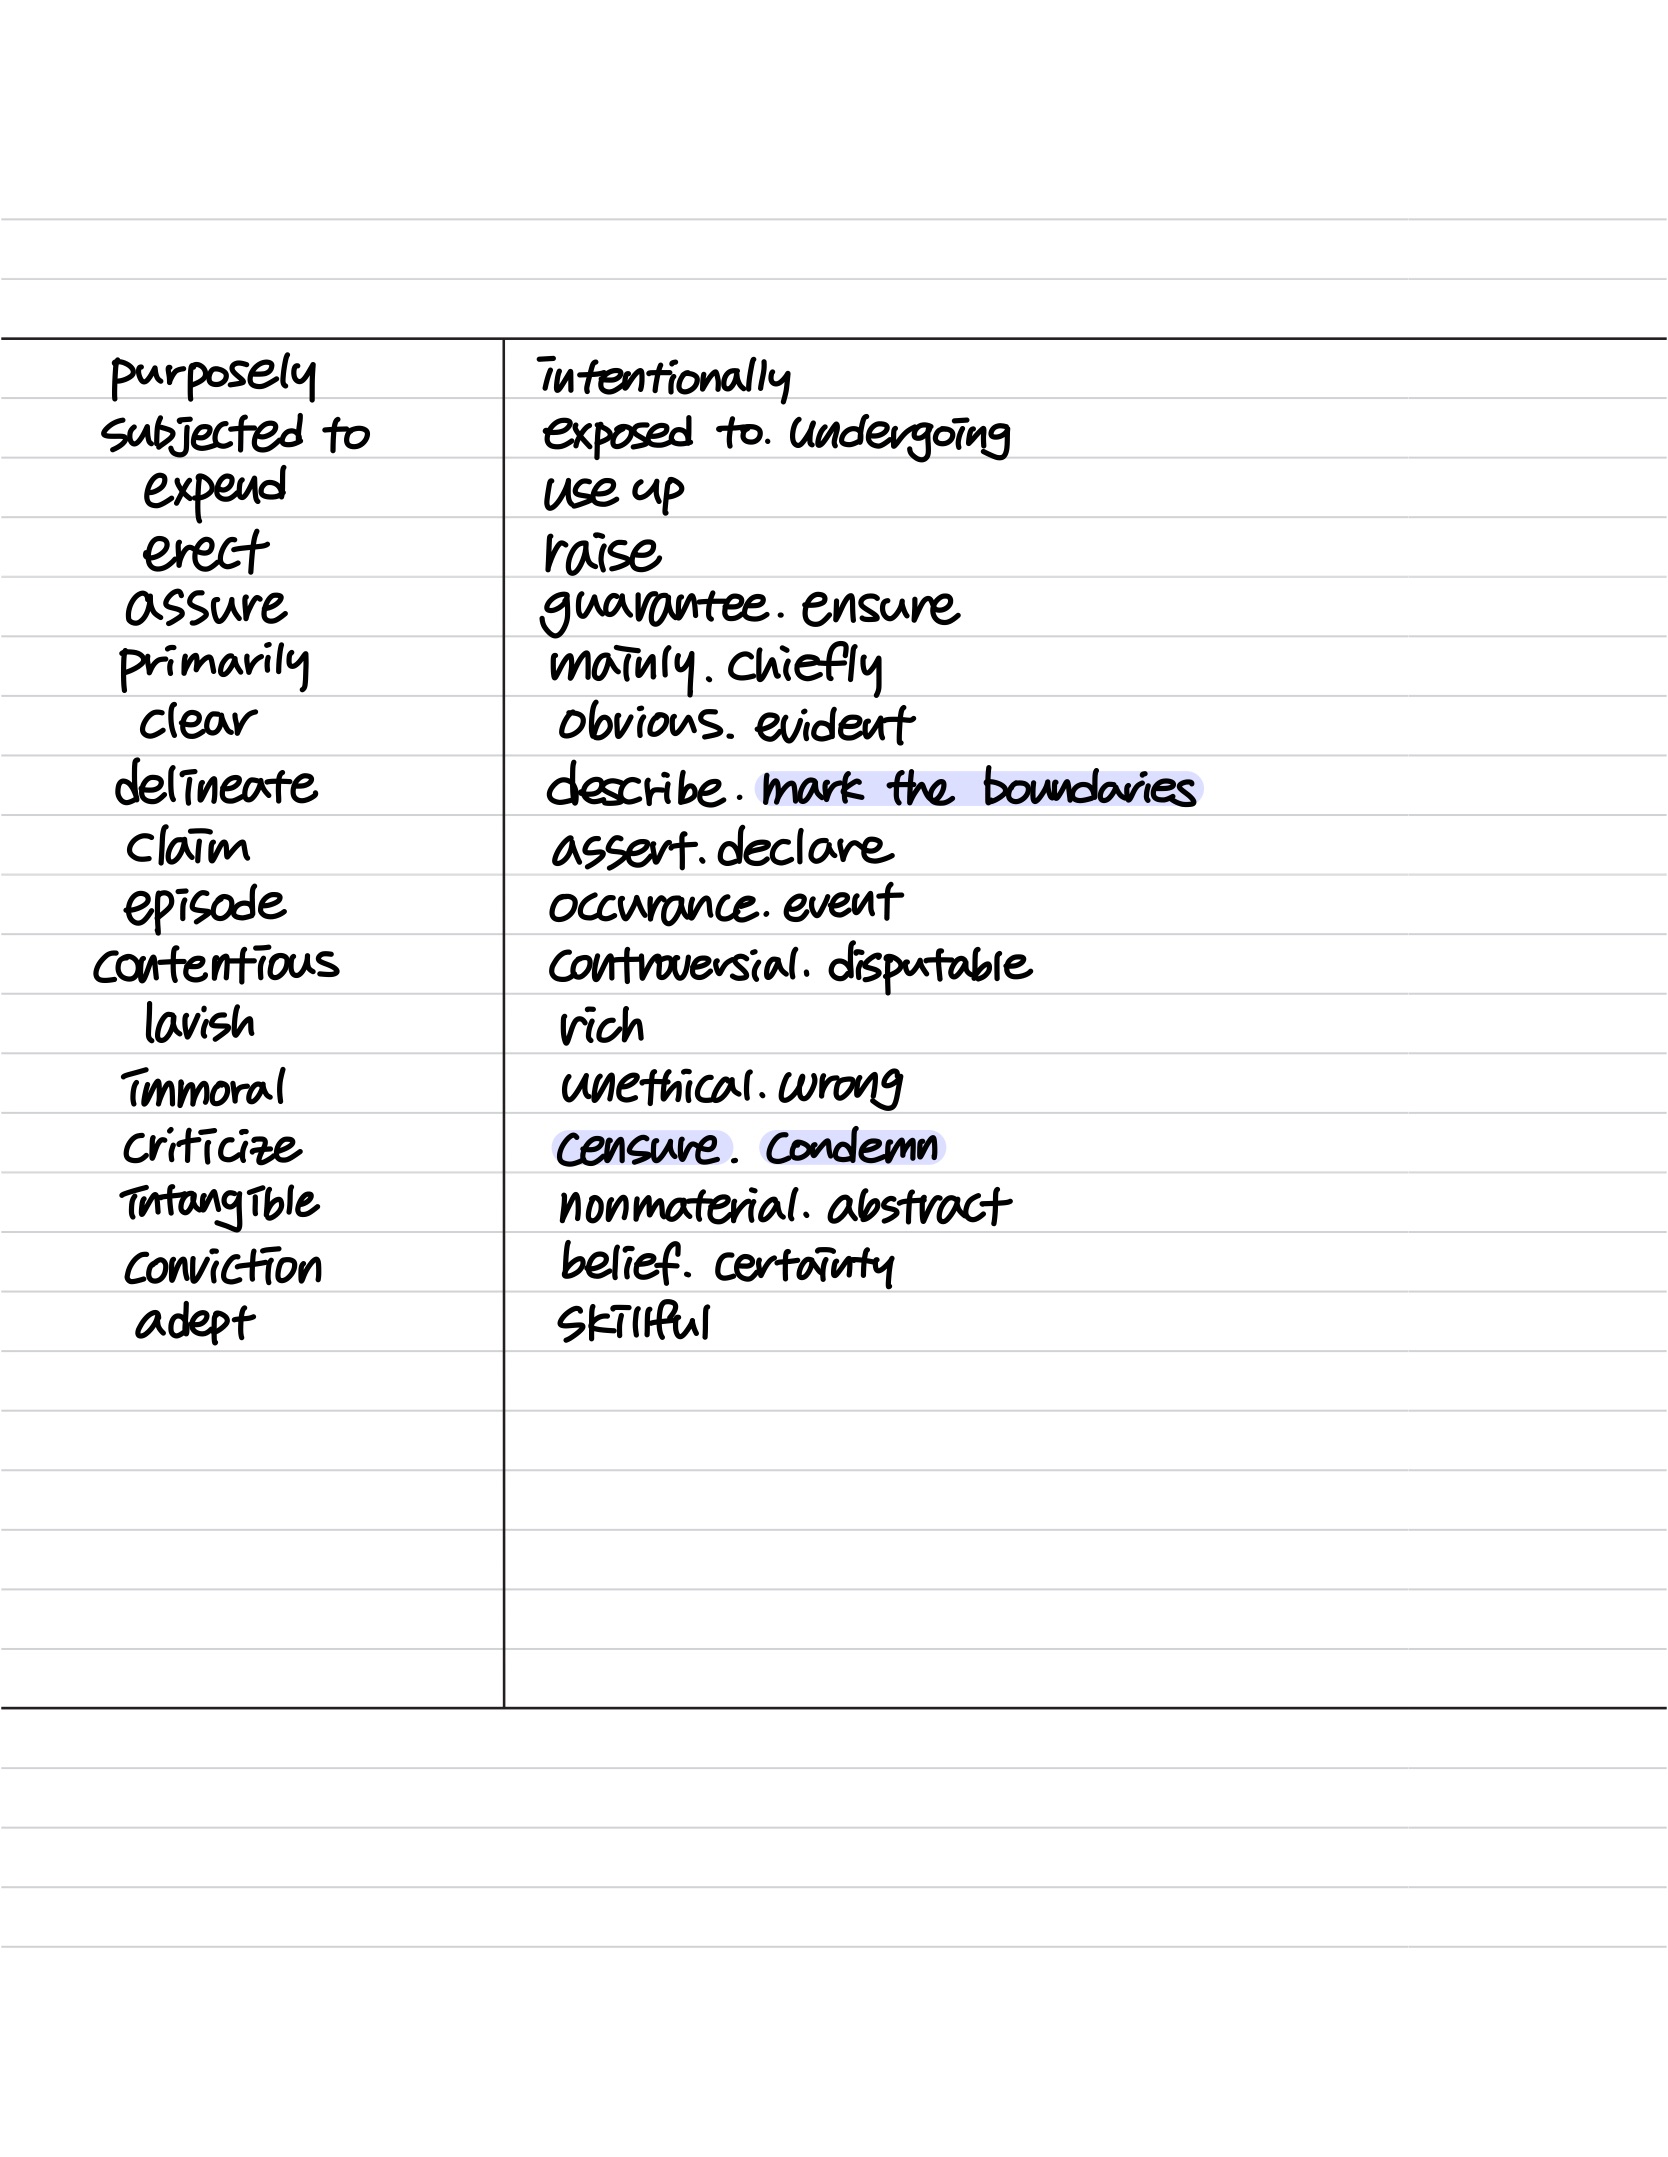 purposely intentionally
subjected to exposed to. undergoing
expend use up
erect raise
assure guarantee. ensure
primarily mainly. chiefly
clear obvious. evident
delineate describe. mark the boundaries
claim assert. declare
episode occurance. event
contentious controversial. disputable
lavish rich
immoral unethical. wrong
criticize censure. condemn
intangible nonmaterial. abstract
conviction belief. certainty
adept skillful